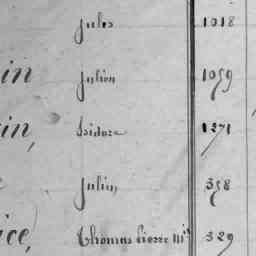 Jules 1018
in Julien 1059
in, Isidore 1371
Julien 358
ice, Thomas Pierre Mie 329